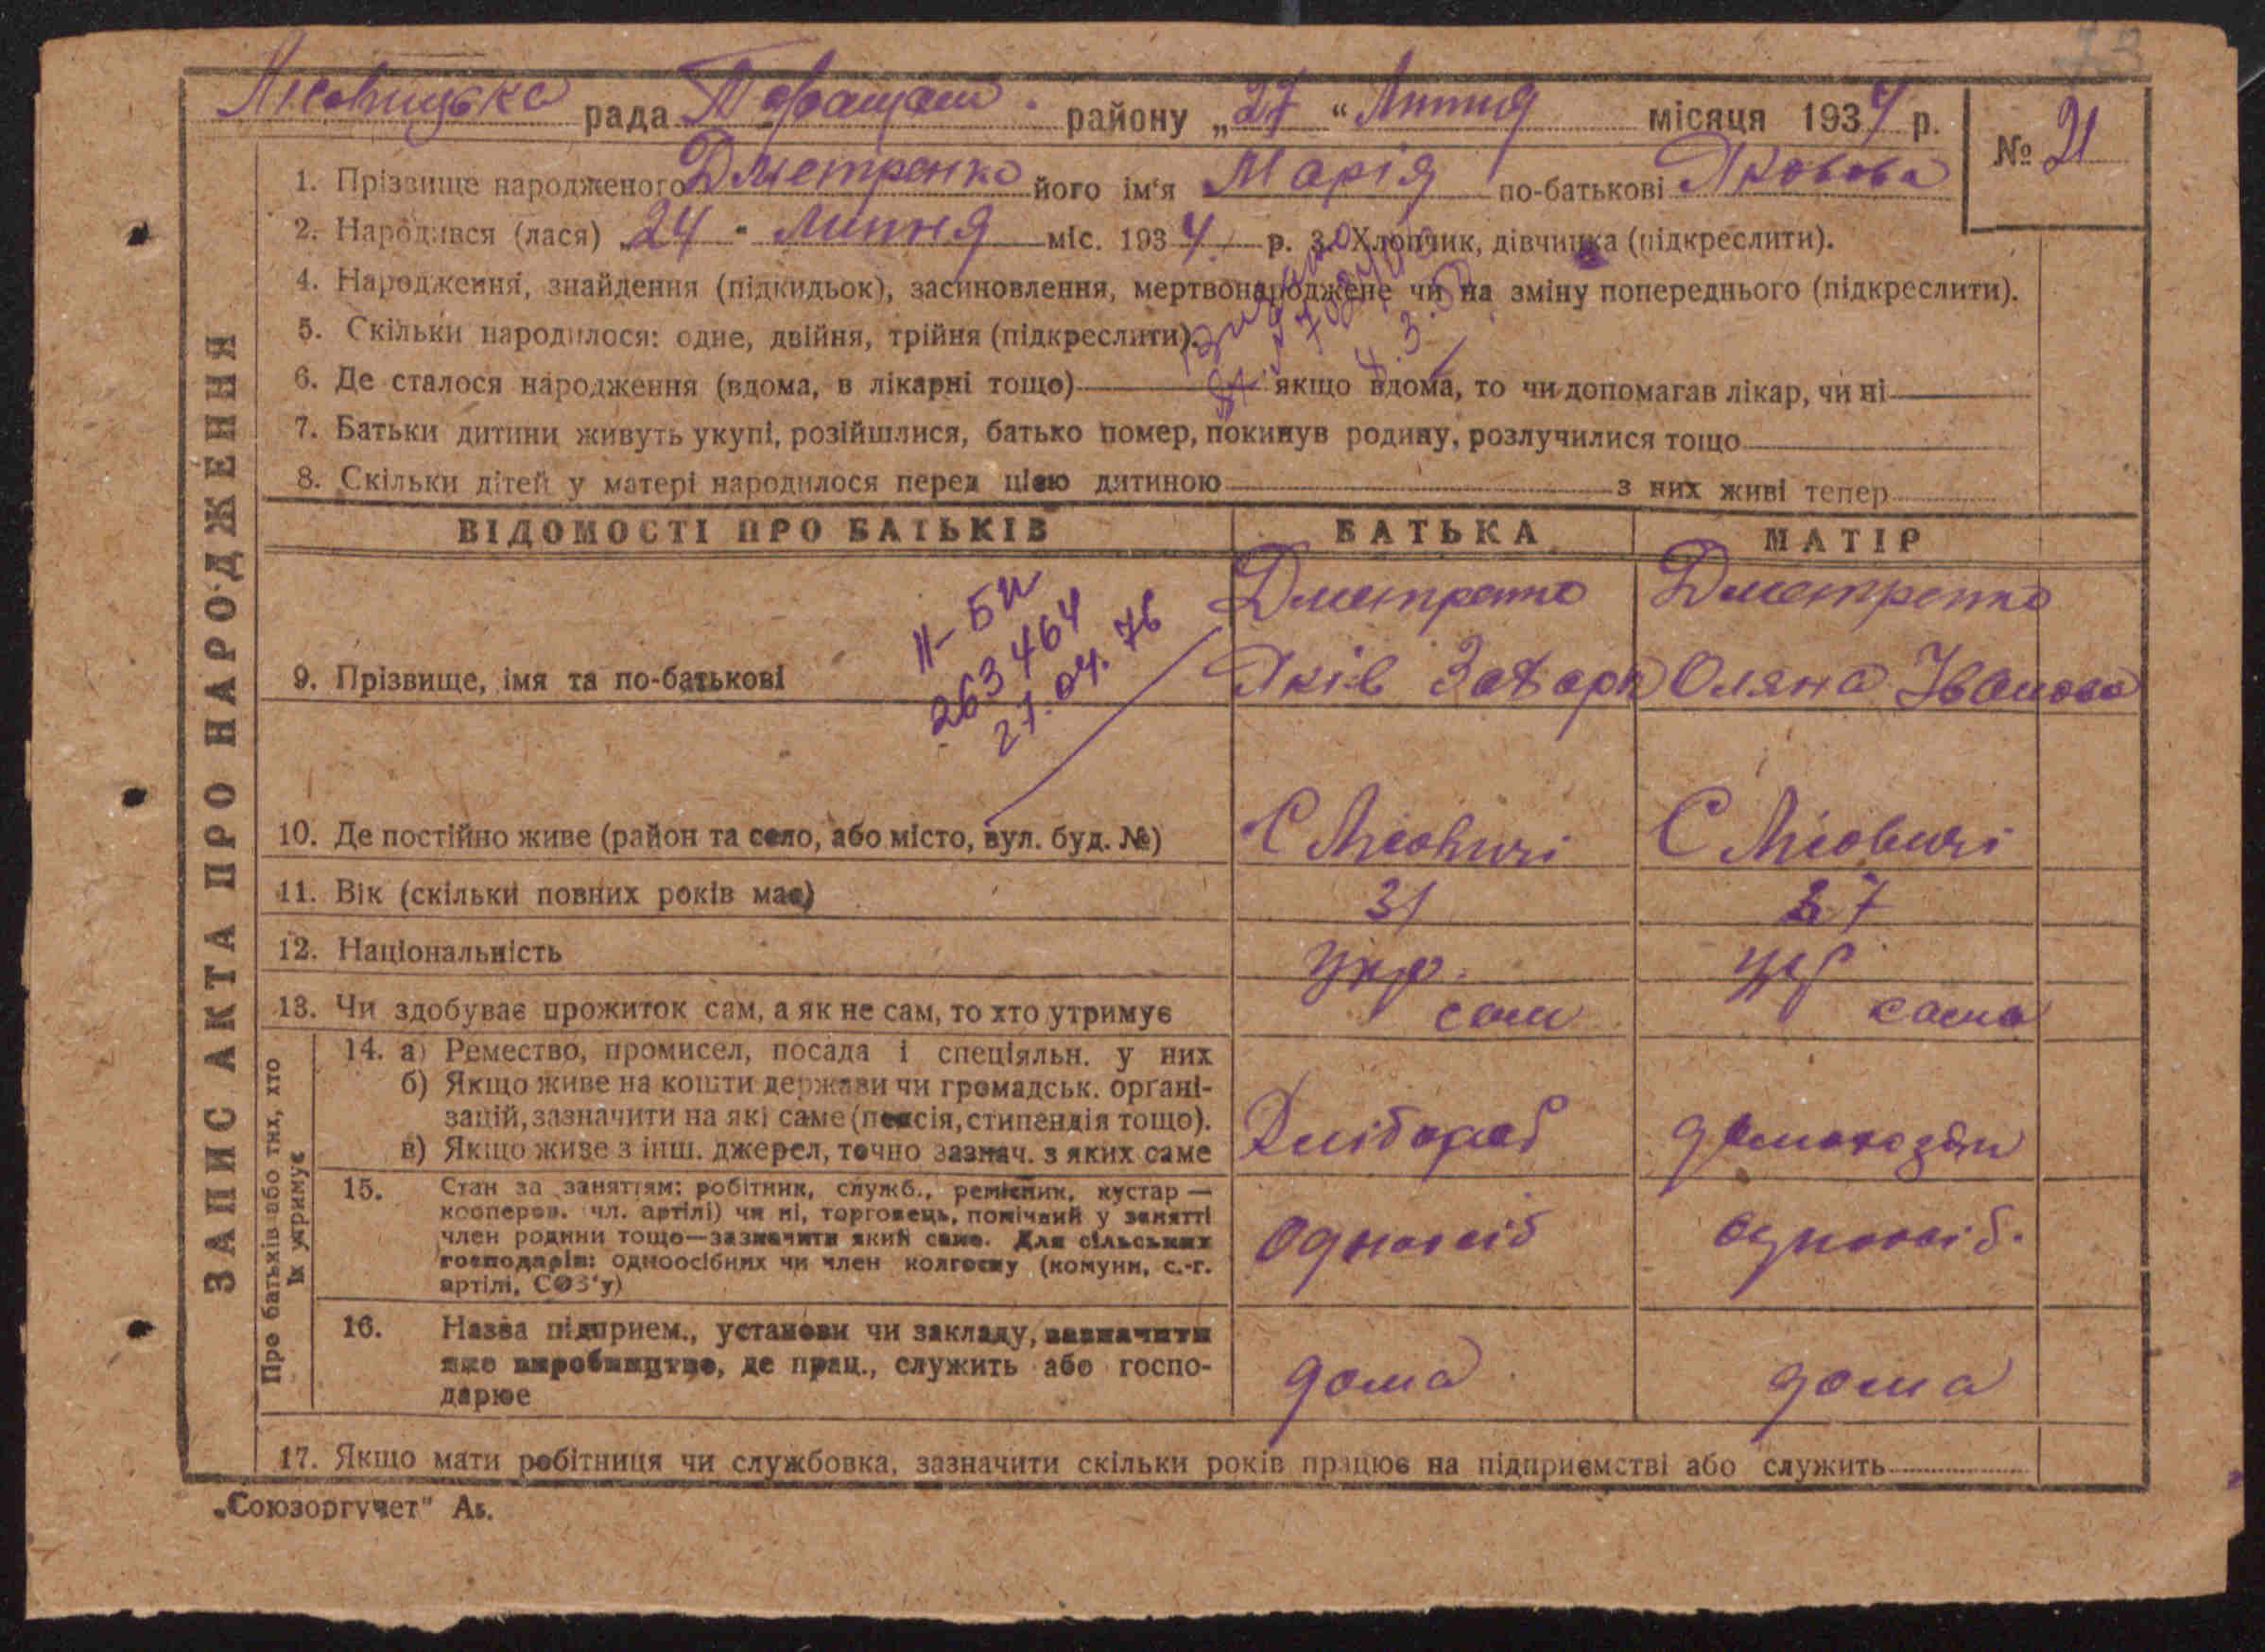 73
Лісовицька рада Таращан. району „27“ Липня місяця 1934 р.
№ 21
1. Прізвище народженого Дметренко його ім'я Марія по-батькові Яковова
2. Народився (лася) 24 " липня міс. 1934 р. 3. Хлопчик, дівчинка (підкреслити).
4. Народження, знайдення (підкидьок), засиновлення, мертвонароджене чи на зміну попереднього (підкреслити).
5. Скільки народилося: одне, двійня, трійня (підкреслити).
6. Де сталося народження (вдома, в лікарні тощо) якщо вдома, то чи допомагав лікар, чи ні
7. Батьки дитини живуть укупі, розійшлися, батько помер, покинув родину, розлучилися тощо
8. Скільки дітей у матері народилося перед цією дитиною з них живі тепер
ЗАПИС АКТА ПРО НАРОДЖЕННЯ
ВІДОМОСТІ ПРО БАТЬКІВ БАТЬКА МАТІР
II-БИ
263464
27.04.76
Дметренко Дметренко
9. Прізвище, імя та по-батькові Яків Захарк Оляна Іванова
10. Де постійно живе (район та село, або місто, вул. буд. №) С Лісовичі С Лісовичі
11. Вік (скільки повних років має) 31 27
12. Національність Укр. укр
13. Чи здобуває прожиток сам, а як не сам, то хто утримує сам сама
Про батьків або тих, хто
їх утримує
14. а) Ремество, промисел, посада і спеціяльн. у них
б) Якщо живе на кошти держави чи громадськ. орґані-
зацій, зазначити на які саме (пенсія, стипендія тощо).
в) Якщо живе з інш. джерел, точно зазнач. з яких саме Хлібороб домохозяй
15. Стан за заняттям: робітник, служб., ремісник, кустар —
кооперов. чл. артілі) чи ні, торговець, помічний у занятті
член родини тощо—зазначити який саме. Для сільських
господарів: одноосібних чи член колгоспу (комуни, с.-г.
артілі, СОЗ'у) Одноосіб одноосіб.
16. Назва підприєм., установи чи закладу, зазначити
яке виробництво, де прац., служить або госпо-
дарює дома дома
17. Якщо мати робітниця чи службовка, зазначити скільки років працює на підприємстві або служить
„Союзоргучет" Аз.